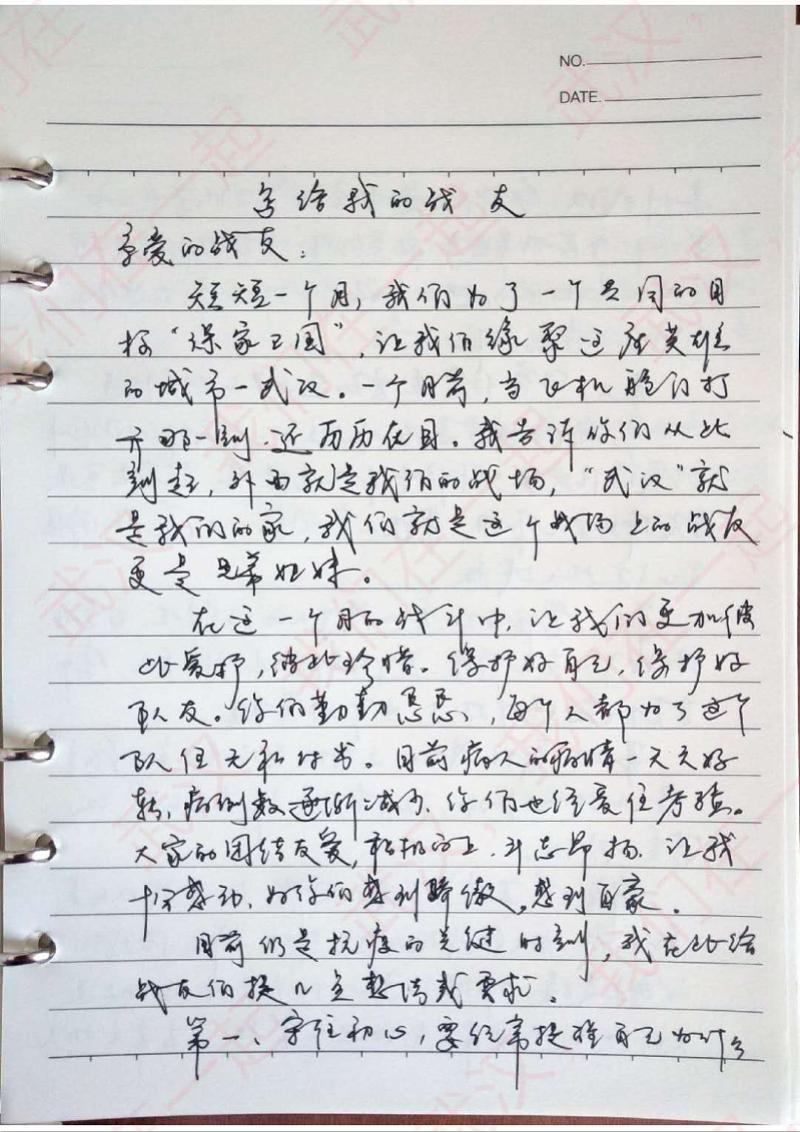 NO.
DATE.
写给我的战友
亲爱的战友:
短短一个月,我们为了一个共同的目
标“保家卫国”,让我们缘聚这座英雄
的城市-武汉。一个月前,当飞机舱门打
开那一刻,还历历在目。我告诉你们从此
刻起,外面就是我们的战场,“武汉”就
是我们的家,我们就是这个战场上的战友
更是兄弟姐妹。
在这一个月的战斗中,让我们更加彼
此爱护,彼此珍惜。保护好自己,保护好
队友。你们勤勤恳恳,每个人都为了这个
队伍无私付出。目前病人的病情一天天好
转,病例数逐渐减少,你们也经受住考验。
大家的团结友爱,积极向上,斗志昂扬,让我
十分感动,为你们感到骄傲,感到自豪。
目前仍是抗疫的关键时刻,我在此给
战友们提几点想法或要求。
第一、守住初心,要经常提醒自己为什么
武汉 我们在一起